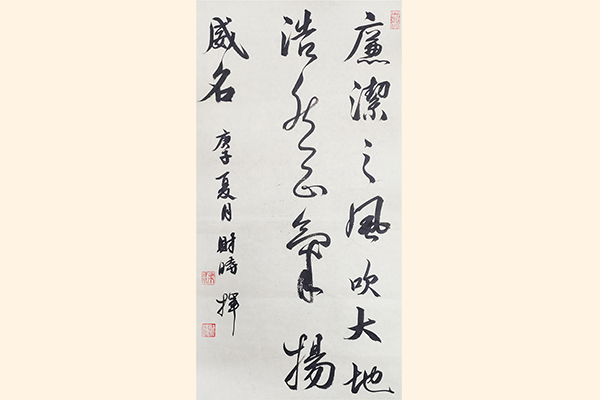 廉潔之風吹大地
浩然正氣揚
威名
庚子夏月財 揮